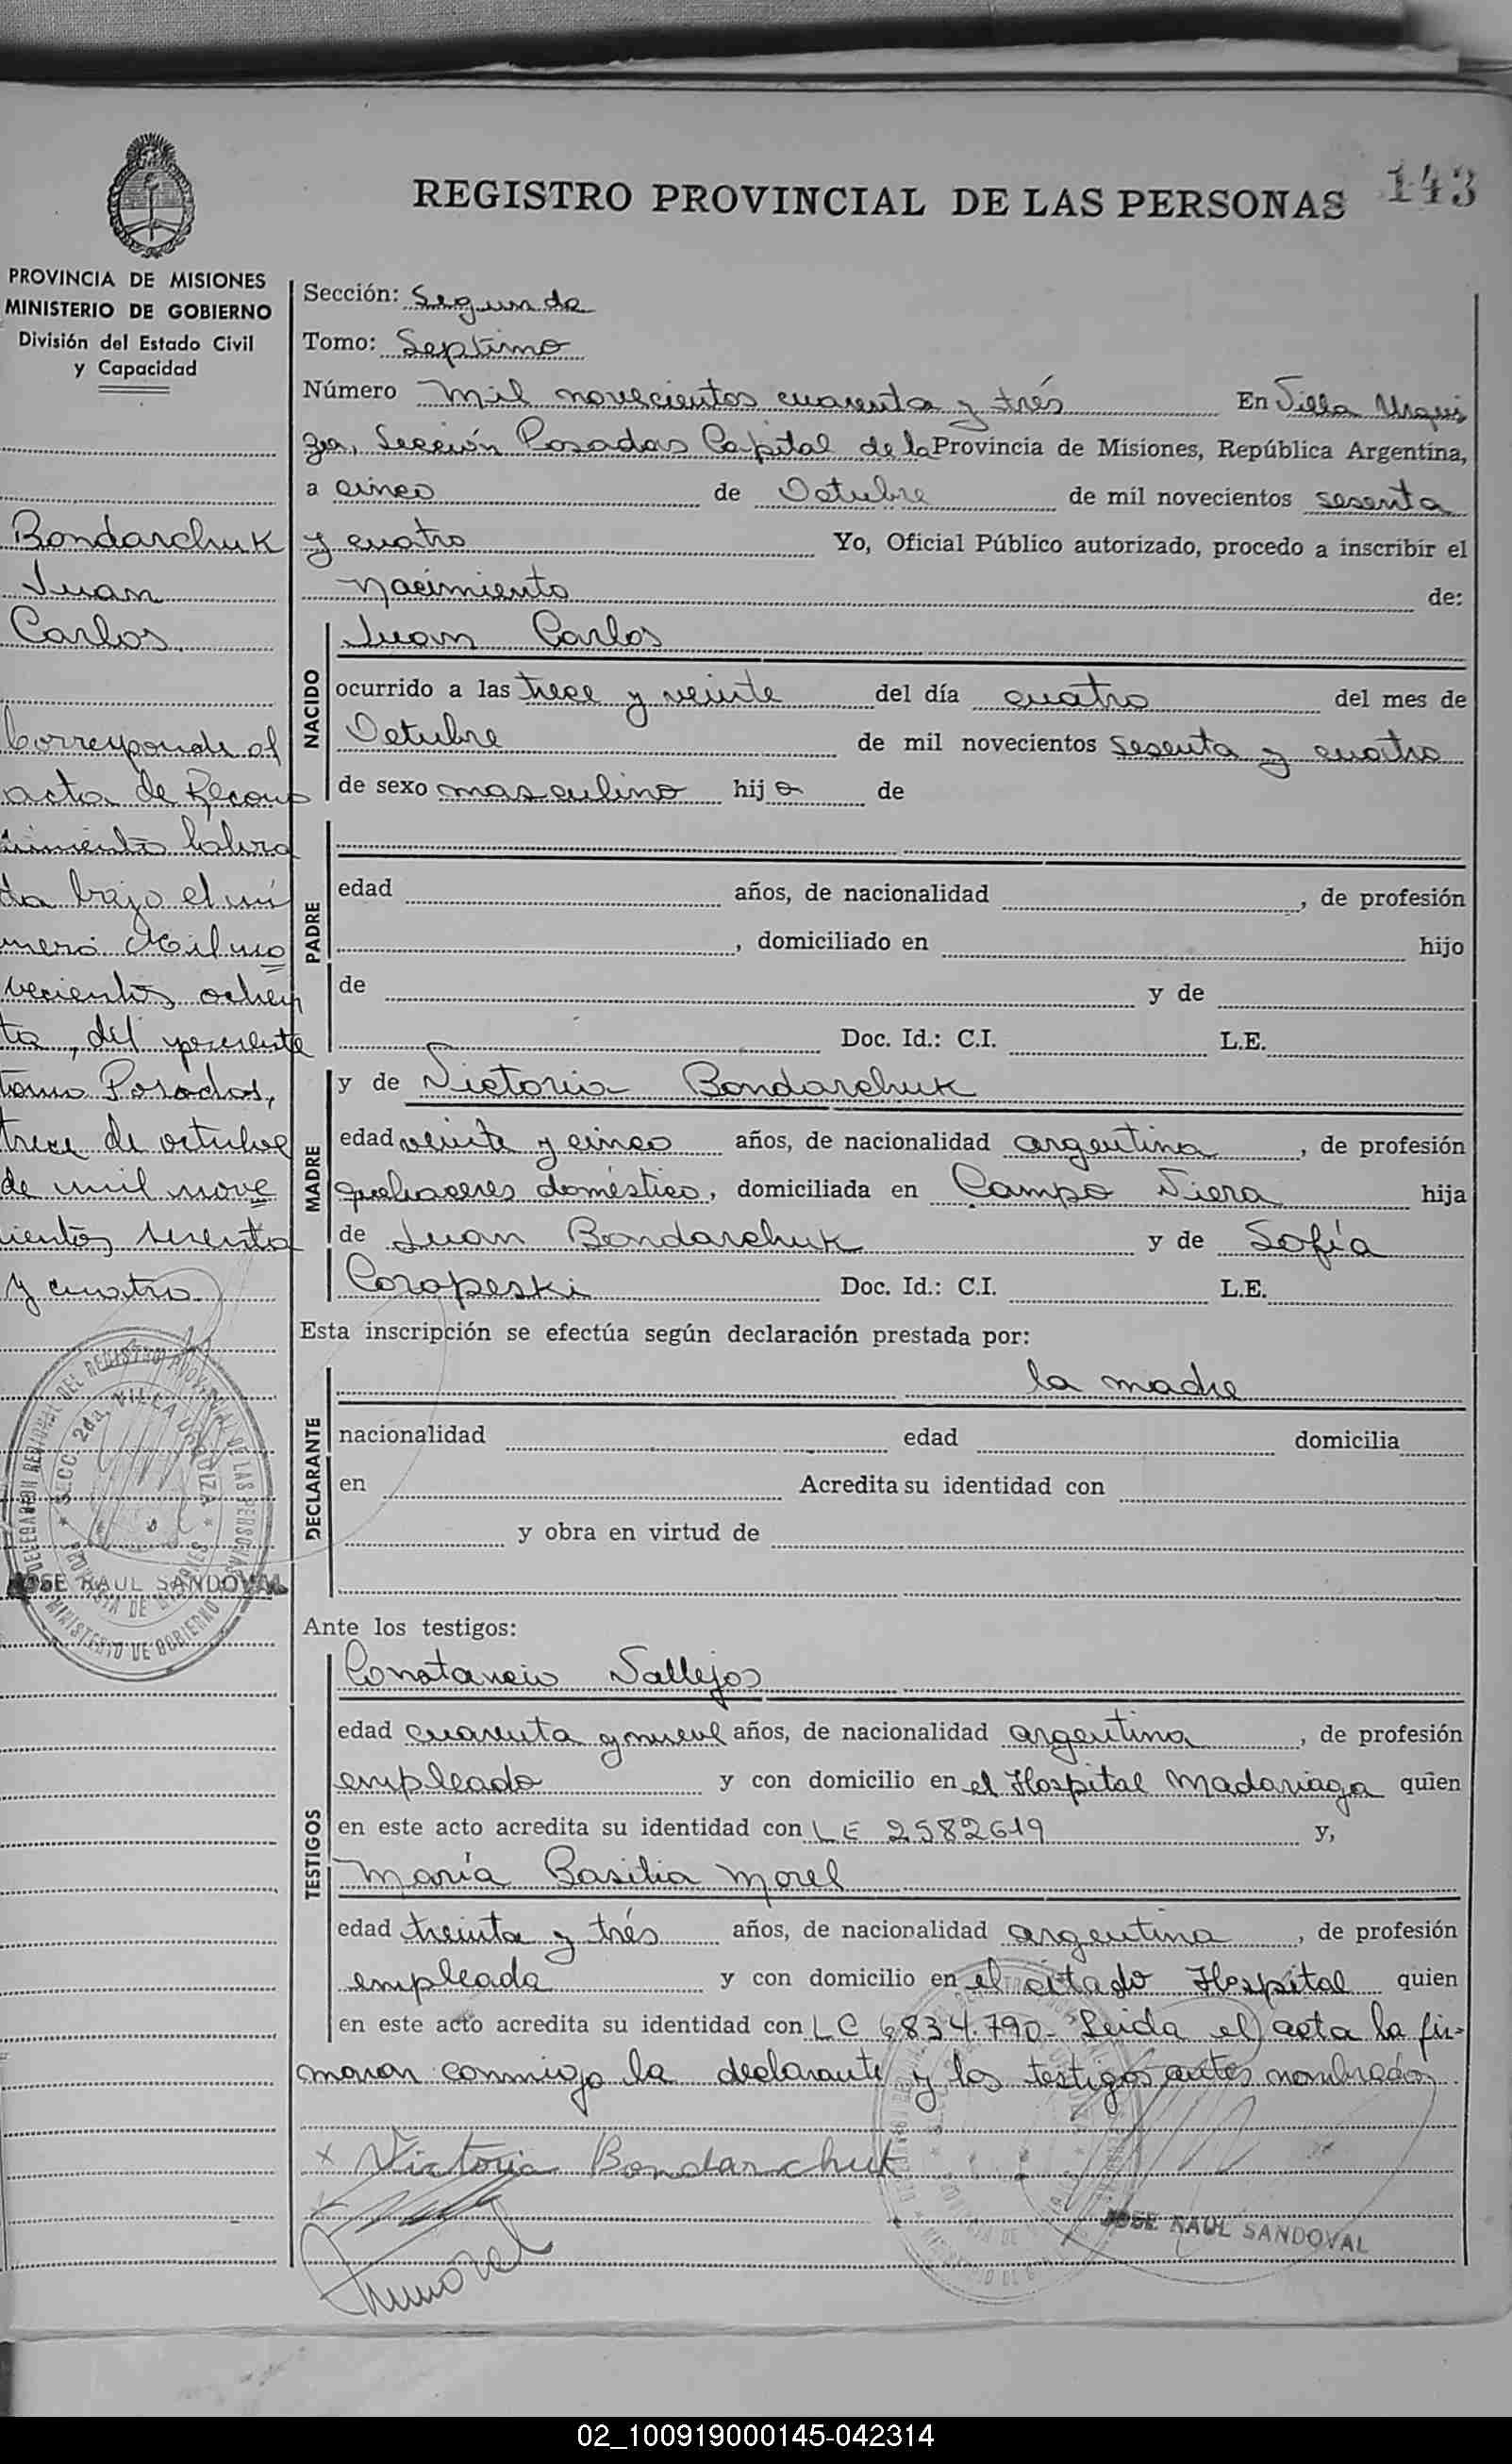 REGISTRO PROVINCIAL DE LAS PERSONAS 143
PROVINCIA DE MISIONES
MINISTERIO DE GOBIERNO
División del Estado Civil
y Capacidad
Bondarchuk
Juan
Carlos
Corresponde al
acta de Recono
cimiento labra
da bajo el nú
mero Mil no
vecientos ochen
ta, del presente
tomo Posadas,
trece de octubre
de mil nove
cientos sesenta
y cuatro
DELEGACION REGIONAL DEL REGISTRO PROVINCIAL DE LAS PERSONAS
SECC. 2da. VILLA URQUIZA
PROVINCIA DE MISIONES
MINISTERIO DE GOBIERNO
JOSE RAUL SANDOVAL
Sección: Segunda
Tomo: Septimo
Número Mil novecientos cuarenta y trés En Villa Urqui
za, Sección Posadas Capital de la Provincia de Misiones, República Argentina,
a cinco de Octubre de mil novecientos sesenta
y cuatro Yo, Oficial Público autorizado, procedo a inscribir el
nacimiento de:
NACIDO
Juan Carlos
ocurrido a las trece y veinte del día cuatro del mes de
Octubre de mil novecientos sesenta y cuatro
de sexo masculino hijo de
PADRE
edad años, de nacionalidad , de profesión
, domiciliado en hijo
de y de
Doc. Id.: C.I. L.E.
MADRE
y de Victoria Bondarchuk
edad veinte y cinco años, de nacionalidad argentina , de profesión
quehaceres doméstico, domiciliada en Campo Viera hija
de Juan Bondarchuk y de Sofía
Coropeski Doc. Id.: C.I. L.E.
Esta inscripción se efectúa según declaración prestada por:
DECLARANTE
la madre
nacionalidad edad domicilia
en Acredita su identidad con
y obra en virtud de
Ante los testigos:
TESTIGOS
Constancio Vallejos
edad cuarenta y nueve años, de nacionalidad argentina , de profesión
empleado y con domicilio en el Hospital Madariaga quien
en este acto acredita su identidad con LE 2582619 y,
María Basilia Morel
edad treinta y trés años, de nacionalidad argentina , de profesión
empleada y con domicilio en el citado Hospital quien
en este acto acredita su identidad con LC 6834.790- Leida el acta la fir-
maron conmigo la declarante y los testigos antes nombrados.
x Victoria Bondarchuk
JOSE RAUL SANDOVAL
02_100919000145-042314